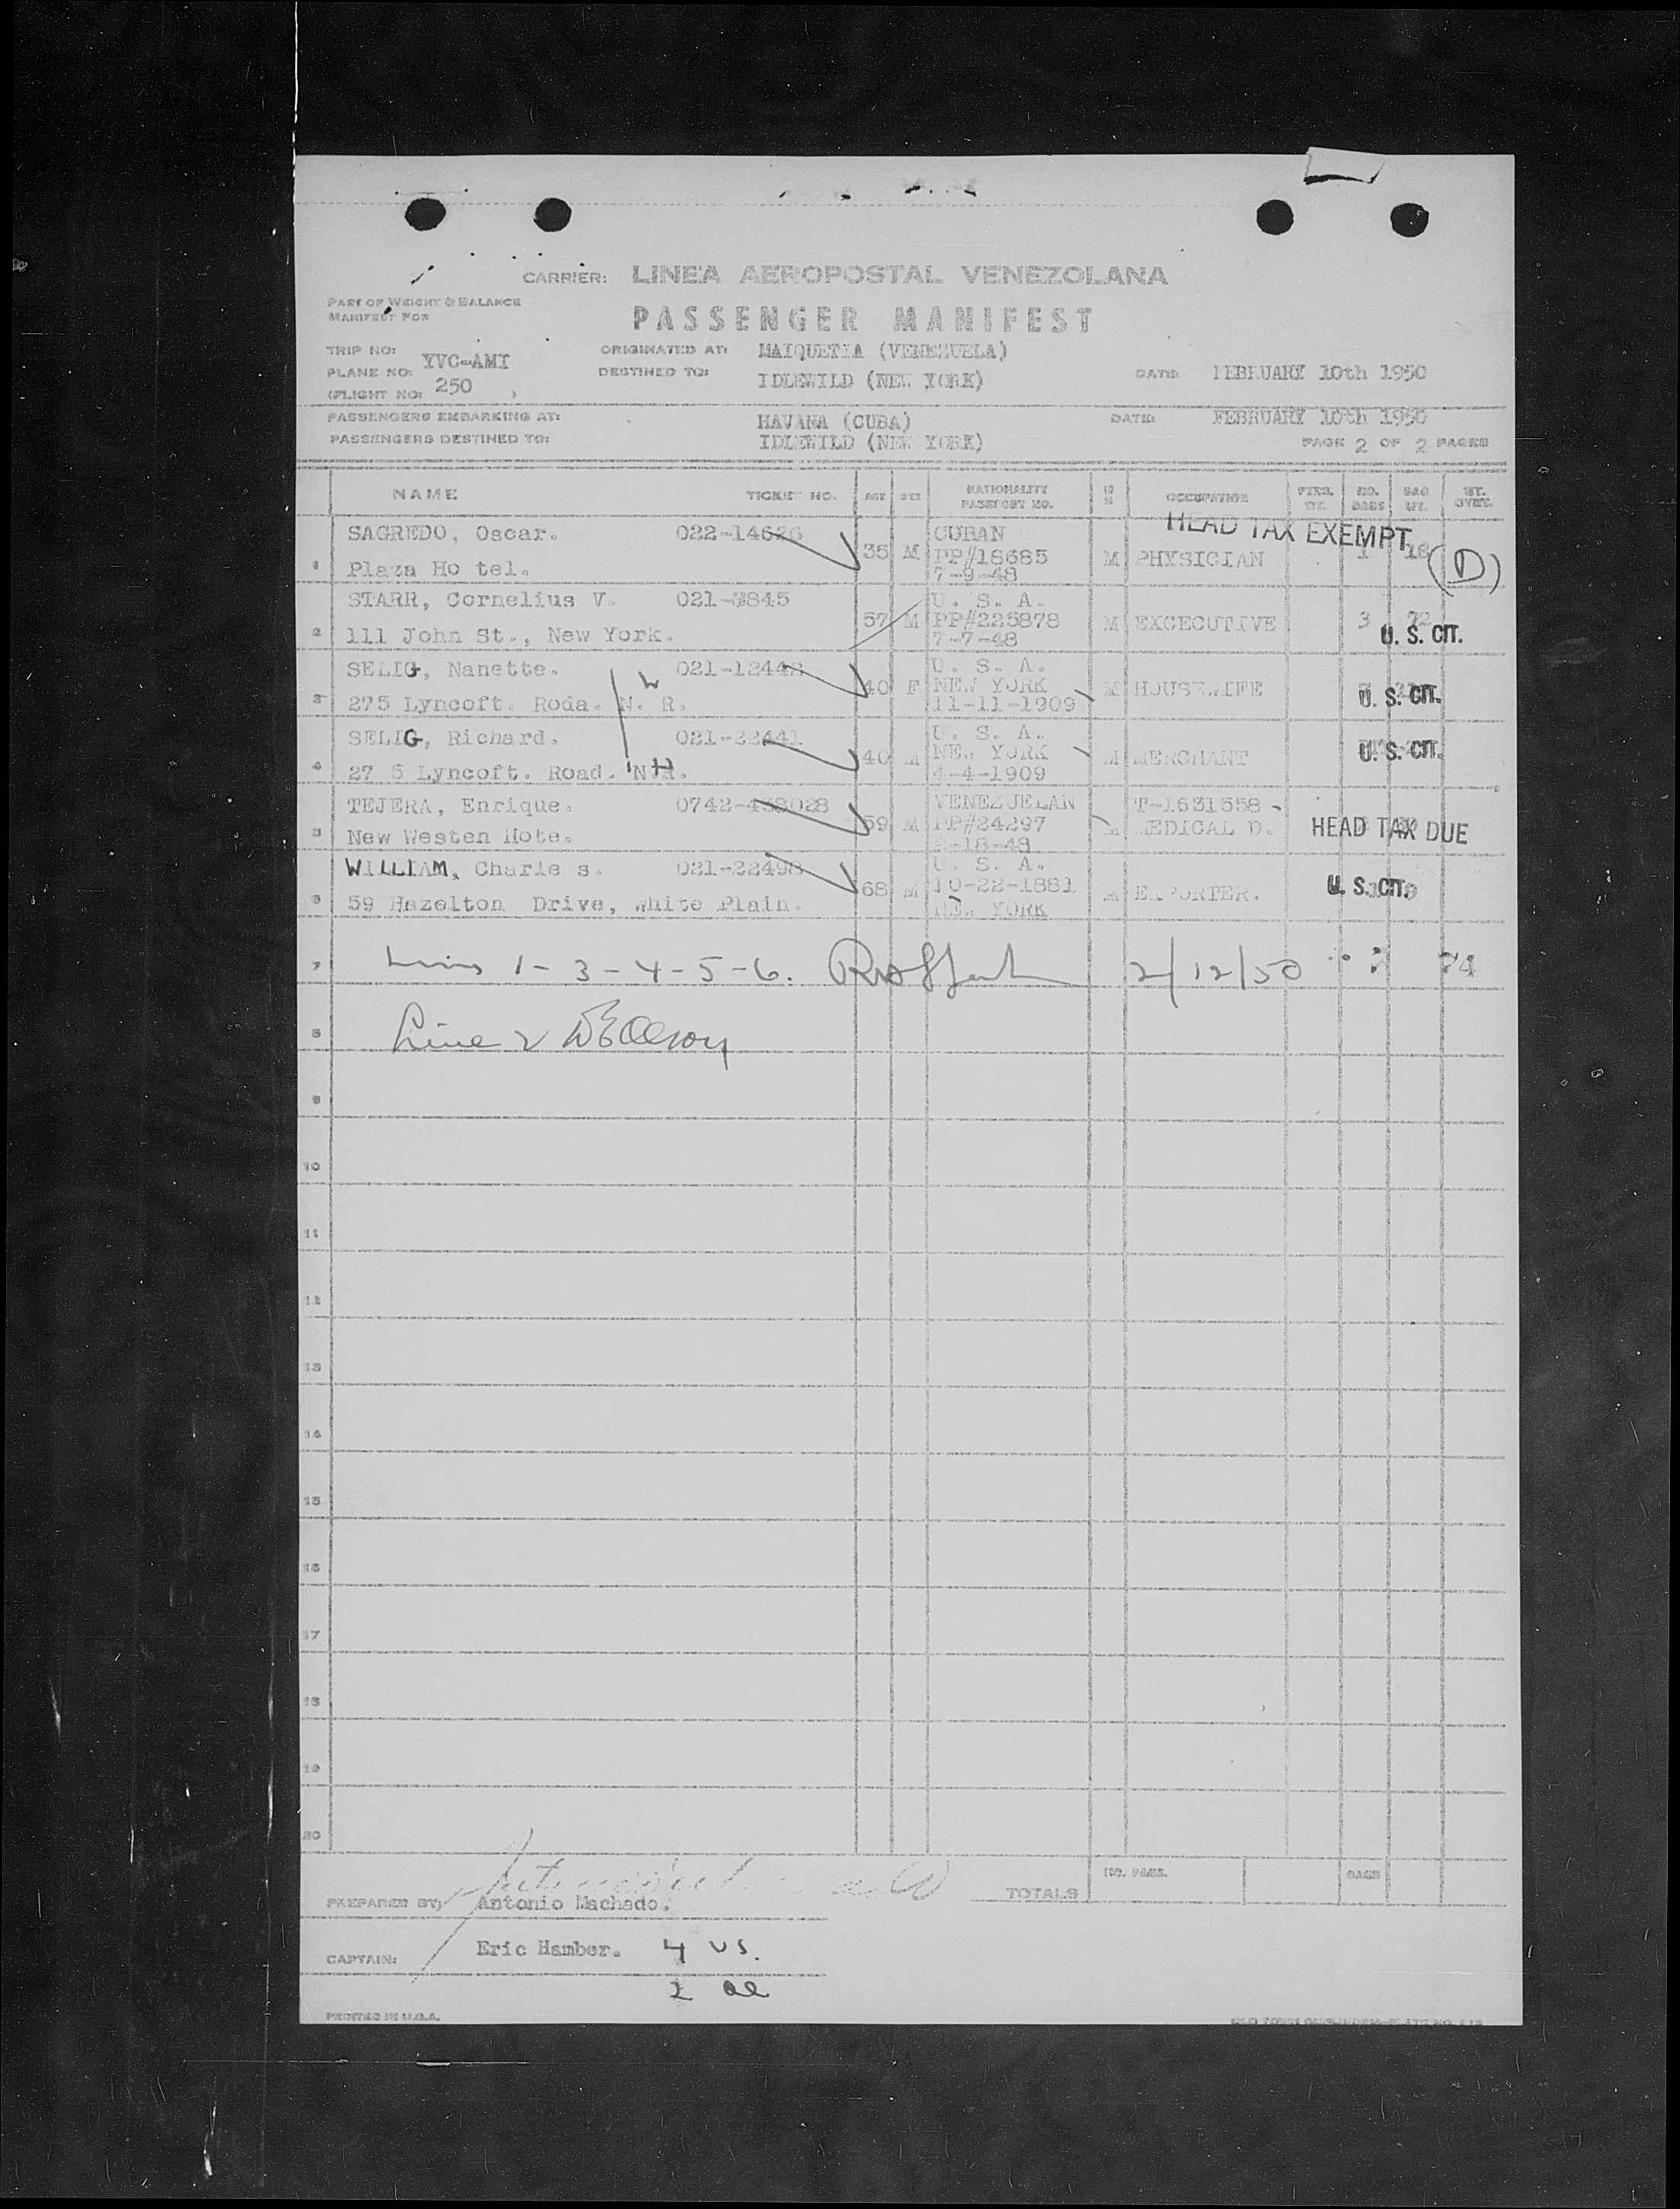 CARRIER: LINEA AEROPOSTAL VENEZOLANA
PART OF WEIGHT & BALANCE
MANIFEST FOR
PASSENGER MANIFEST
TRIP NO:
PLANE NO: YVC-AMI
(FLIGHT NO: 250 )
ORIGINATED AT: MAIQUETIA (VENEZUELA)
DESTINED TO: IDLEWILD (NEW YORK)
DATE: FEBRUARY 10th 1950
PASSENGERS EMBARKING AT: HAVANA (CUBA) DATE: FEBRUARY 10th 1950
PASSENGERS DESTINED TO: IDLEWILD (NEW YORK) PAGE 2 OF 2 PAGES
NAME TICKET NO. AGE SEX NATIONALITY PASSPORT NO. OCCUPATION NO. BAGS BAG WT.
HEAD TAX EXEMPT
SAGREDO, Oscar. 022-14626 35 M CUBAN
1 Plaza Ho tel. PP/18685 M PHYSICIAN 1 18 (D)
7-9-48
STARR, Cornelius V. 021-3845 57 M U. S. A.
2 111 John St., New York. PP#225878 M EXCECUTIVE 3 72
7-7-48 U. S. CIT.
SELIG, Nanette. 021-12448 40 F U. S. A.
3 275 Lyncoft. Roda. N. R. NEW YORK M HOUSEWIFE U. S. CIT.
11-11-1909
SELIG, Richard. 021-22441 40 M U. S. A.
4 27 5 Lyncoft. Road. N.R. NEW YORK M MERCHANT U. S. CIT.
4-4-1909
TEJERA, Enrique. 0742-438028 59 M VENEZUELAN T-1631558
5 New Westen Hote. PP#24297 M MEDICAL D. HEAD TAX DUE
-18-48
WILLIAM, Charle s. 021-22498 68 M U. S. A.
6 59 Hazelton Drive, White Plain. 10-22-1881 M EXPORTER. U. S. CIT.
NEW YORK
7 Lines 1-3-4-5-6. 2/12/50 74
8 Line 2
9
10
11
12
13
14
15
16
17
18
19
20
TOTALS NO. PASS. BAGS
PREPARED BY: Antonio Machado.
CAPTAIN: Eric Hamber. 4 US.
2 al
PRINTED IN U.S.A.